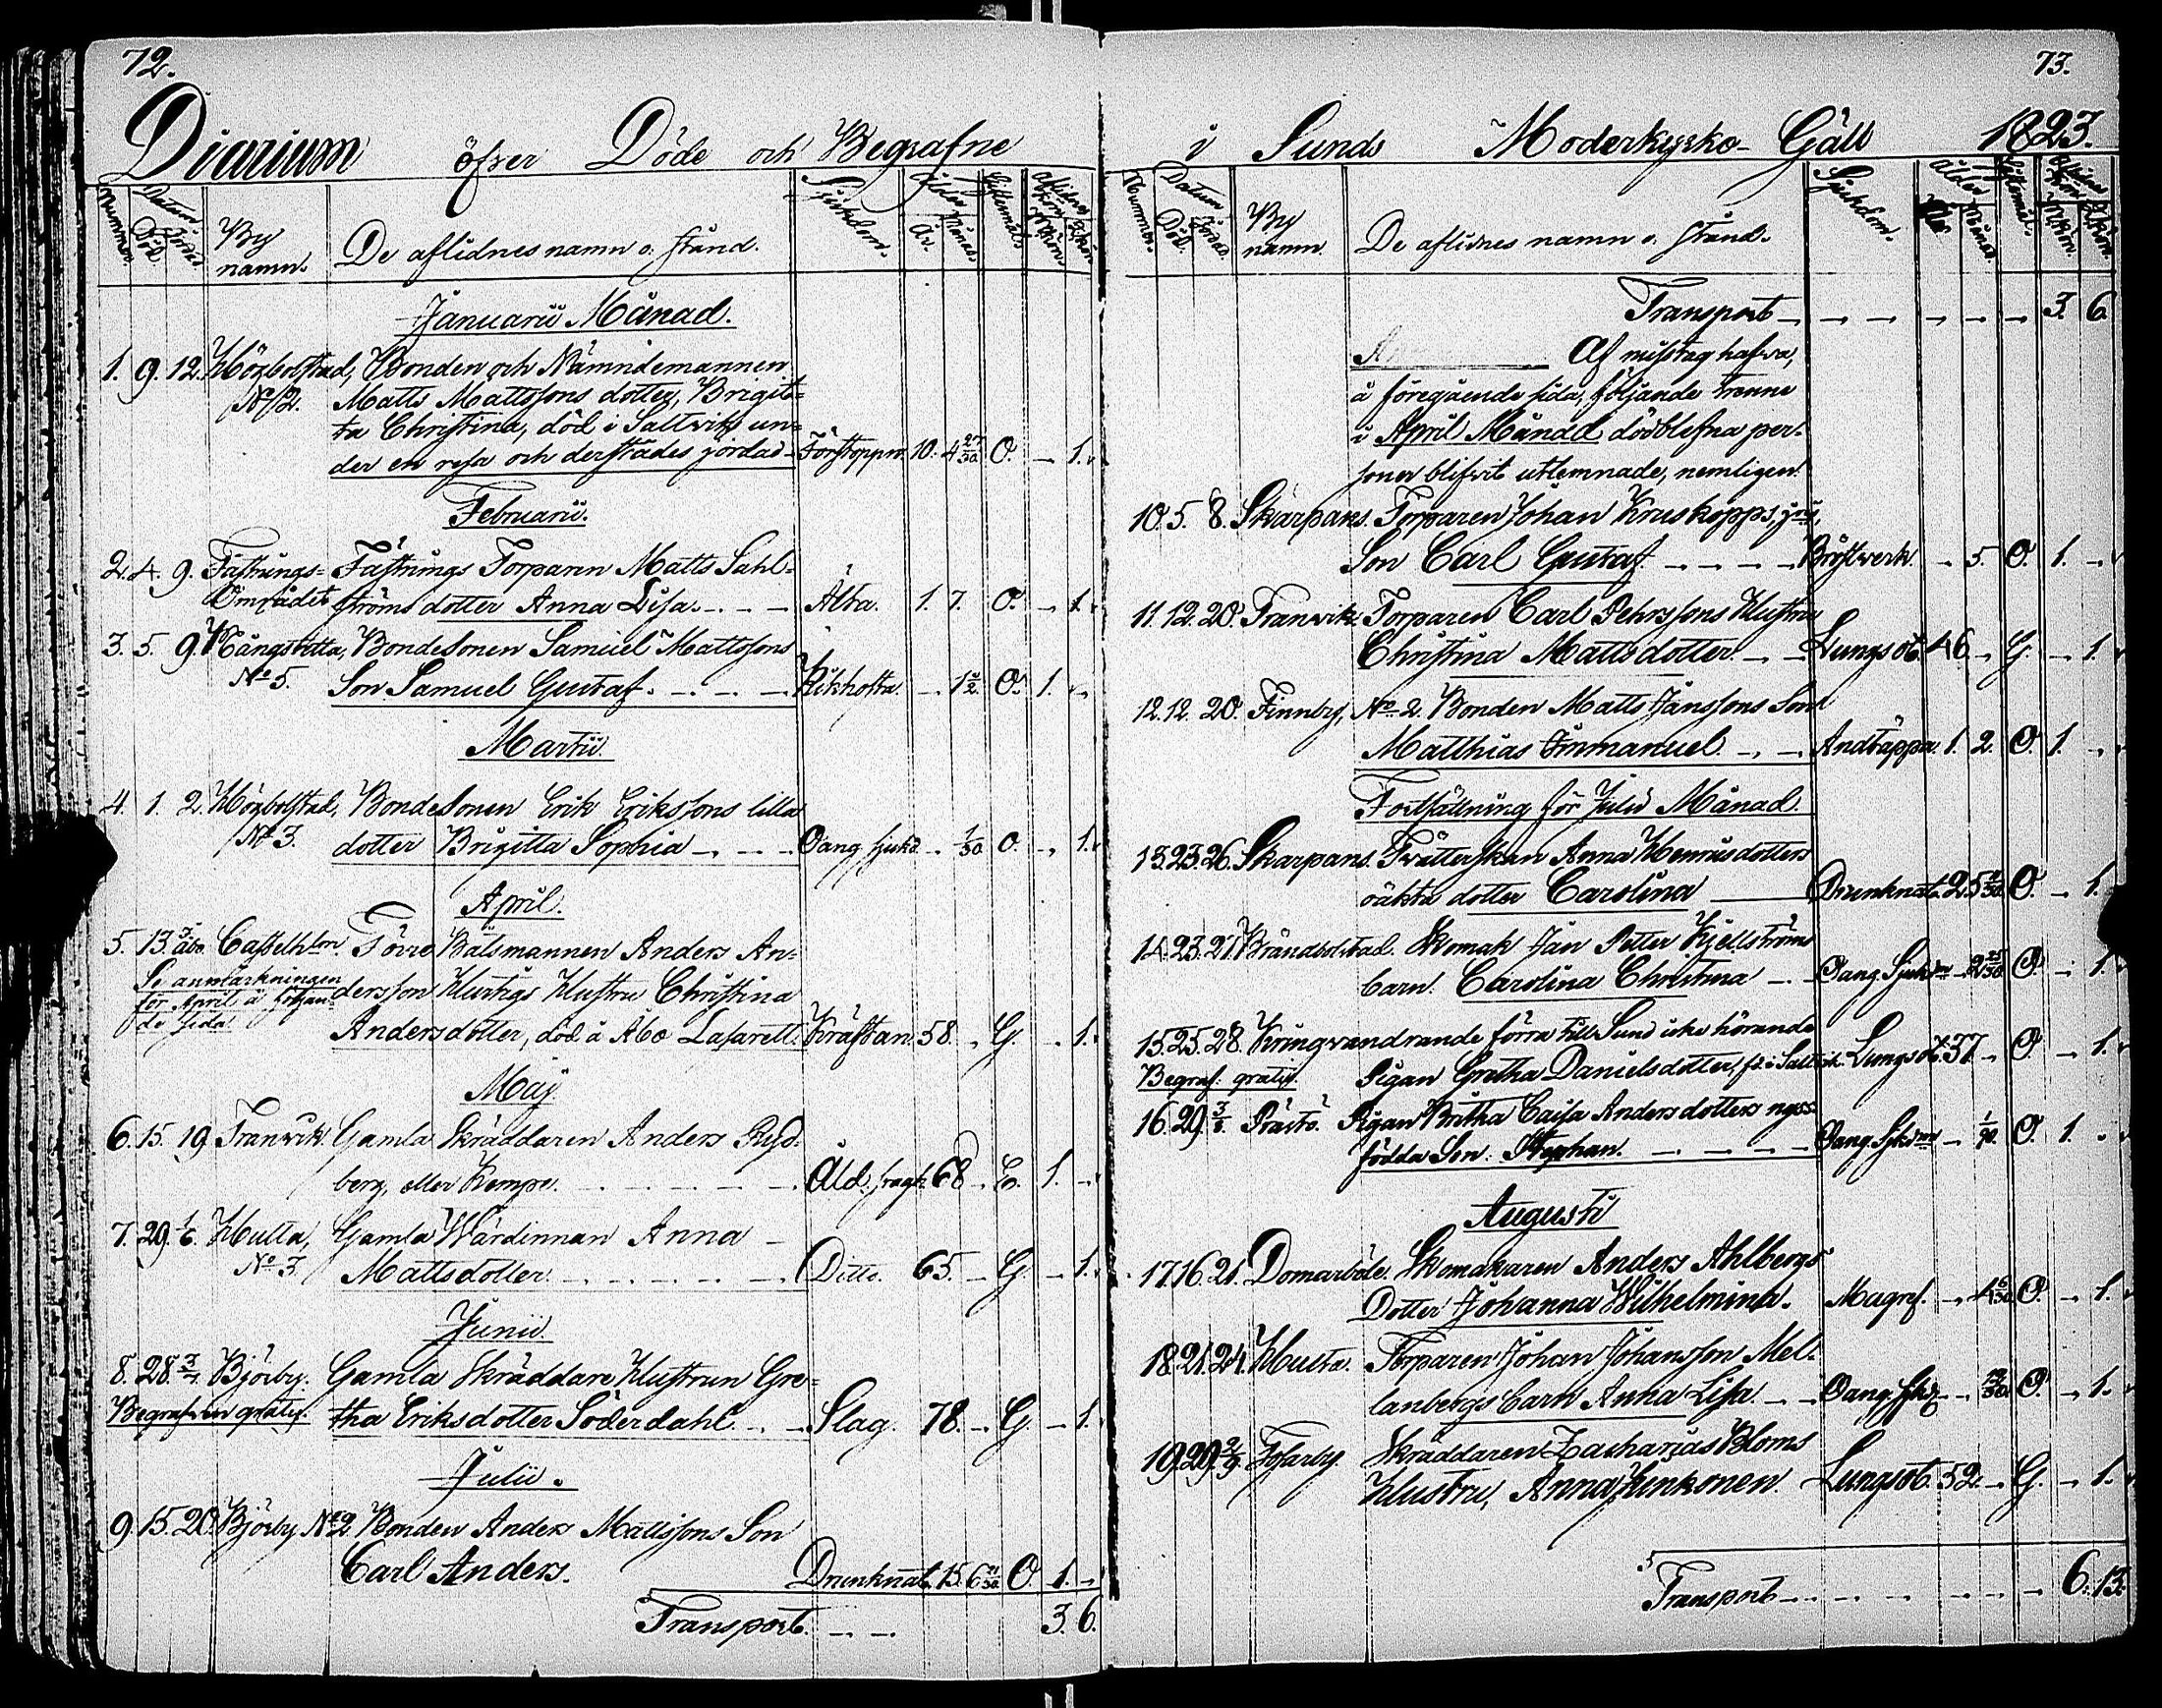 72.
Diarium öfver Döde och Begrafne
Nummer. Datum Död. Jordad By namn. De aflidnes namn o. stånd. Sjukdom. Ålder År. Månad. Giftermål. Aflidnes kön Mkön. Qkön.
Januarii Månad.
1. 9. 12. Högbolstad, Bonden och Nämndemannen
No 2. Matts Mattssons dotter, Brigit-
ta Christina, död i Saltvik un-
der en resa och derstädes jordad Förstoppn. 10. 4 27/30 O. - 1.
Februarii.
2. 4. 9. Fästnings- Fästnings Torparen Matts Sahl-
Området ströms dotter Anna Lisa. - - - Älta. 1. 7. O. - 1.
3. 5. 9. Mångstekta, Bondesonen Samuel Mattssons
No 5. Son Samuel Gustaf. - - - Kikhosta. - 1 1/2 O. 1. -
Martii.
4. 1. 2. Högbolstad, Bondesonen Erik Erikssons lilla
No 3. dotter Brigitta Sophia - - - Oäng. sjukd. - 1/30 O. - 1.
April.
5. 13. Casselh:lm. Förre Båtsmannen Anders An-
Se anmärkningen dersson Hurtigs Hustru Christina
för April å följan-
de sida.
Andersdotter, död å Åbo Lasarett. Kräftan. 58. - G. - 1.
Maj
6. 15. 19. Tranvik Gamla Skräddaren Anders Ryd-
berg, eller Kempe. - - - - Åld. bragk. 68. - E. 1. -
7. 29. 1/6. Hulta, Gamla Wärdinnan Anna -
No 3. Mattsdotter. - - - - - Ditto. 65. - G. - 1.
Junii.
8. 28. 3/7. Björby. Gamla Skräddare Hustrun Gre-
Begrafven gratis. tha Eriksdotter Söderdahl. - - Slag. 78. - G. - 1.
Julii.
9. 15. 20. Björby No 2. Bonden Anders Mattssons Son
Carl Anders. Drunknat. 15. 6 O. 1. -
Transport. - - 3. 6.
73.
i Sunds Moderkyrko-Gäll 1823.
Nummer. Datum Död. Jordad. By namn. De aflidnes namn o. stånd. Sjukdom. Ålder Månad. Giftermål. Aflidnes kön Mkön. Qkön.
Transport - - - - - - 3. 6.
Af misstag hafva,
å föregående sida, följande trenne
i April Månad dödblefna per-
soner blifvit utlemnade, nemligen:
10. 5. 8. Skarpans. Torparen Johan Kruskopps,
Son Carl Gustaf - - - - Bröstverk. - 5. O. 1. -
11. 12. 20. Tranvik. Torparen Carl Pehrssons Hustru
Christina Mattsdotter. - - Lungsot. 46. - G. - 1.
12. 12. 20. Finnby, No 2. Bonden Matts Jänssons Son
Matthias Immanuel. - - Andtäppa. 1. 2. O. 1. -
Fortsättning för Julii Månad.
13. 23. 26. Skarpans. Tvätterskan Anna Henriksdotters
oäkta dotter Carolina Drunknat. 2. 5 O. - 1.
14. 23. 27. Brändbolstad. Skomak. Jan Petter Kjellströms
barn. Carolina Christina - - Oang. Sjukd:m - 2 25/30 O. - 1.
15. 25. 28. Kringvandrande förra till Sund icke hörande
Begraf: gratis. Pigan Gretha Danielsdotter, f. i Saltvik. Lungsot. 37. - O. - 1.
16. 29. 3/8. Prästö. Pigan Britha Caisa Andersdotters nyss
födda Son. Stephan. - - - - Oang. Sjkd:m - O. 1. -
Augusti
17. 16. 21. Domarböle. Skomakaren Anders Ahlbergs
Dotter Johanna Wilhelmina. Magref. - 4 O. - 1.
18. 21. 24. Hulta. Torparen Johan Johansson Mel-
lanbergs barn Anna Lisa. - - Oang. sjkd. - O. - 1.
19. 29. 2/9. Tosarby. Skräddaren Zacharias Bloms
Hustru, Anna Hinkonen. Lungsot. 52. - G. - 1.
Transport - - - - - - 6. 13.